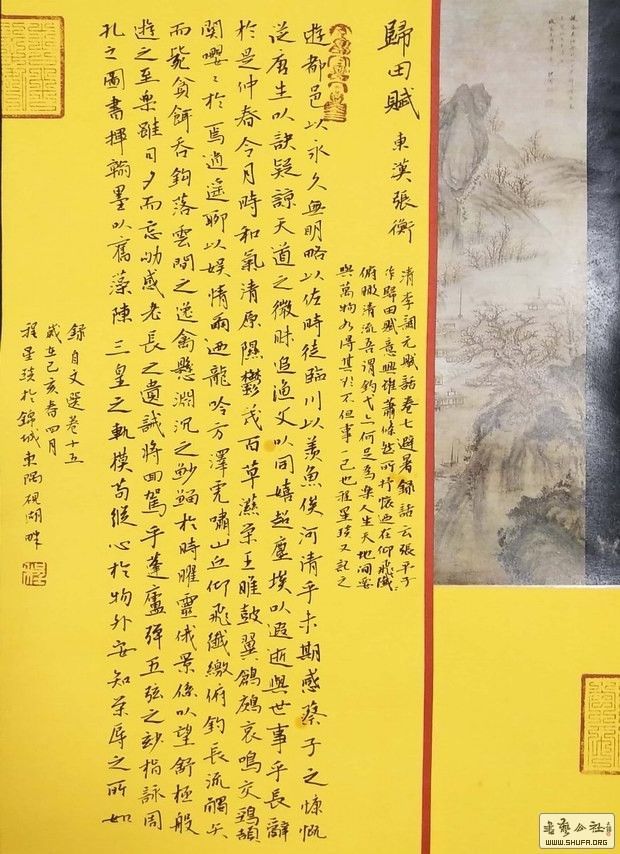 歸田賦 東漢張衡
清李調元賦話卷七避暑錄話云張平子
作歸田賦意興雖蕭條然所抒懷迺在仰飛纖
俯撒清流吾謂釣弋亦何足為樂人生天地間要
與萬物各得其所不但事一己也程星琰又記之
遊都邑以永久無明略以佐時徒臨川以羨魚俟河清乎未期感蔡子之慷慨
從唐生以訣疑諒天道之微昧追漁父以同嬉超塵埃以遐逝與世事乎長辭
於是仲春令月時和氣清原隰鬱茂百草滋榮王雎鼓翼鶬鶊哀鳴交頸頡
關關嚶嚶於焉逍遙聊以娛情爾迺龍吟方澤虎嘯山丘仰飛纖繳俯釣長流觸矢
而斃貪餌吞鉤落雲間之逸禽懸淵沉之魦鰡於時曜靈俄景係以望舒極般
遊之至樂雖日夕而忘劬感老氏之遺誡將回駕乎蓬廬彈五弦之玅指詠周
孔之圖書揮翰墨以奮藻陳三皇之軌模苟縱心於物外安知榮辱之所如
錄自文選卷十五
歲在己亥春四月
程星琰於錦城東隅硯湖畔
書法公社
WWW.SHUFA.ORG